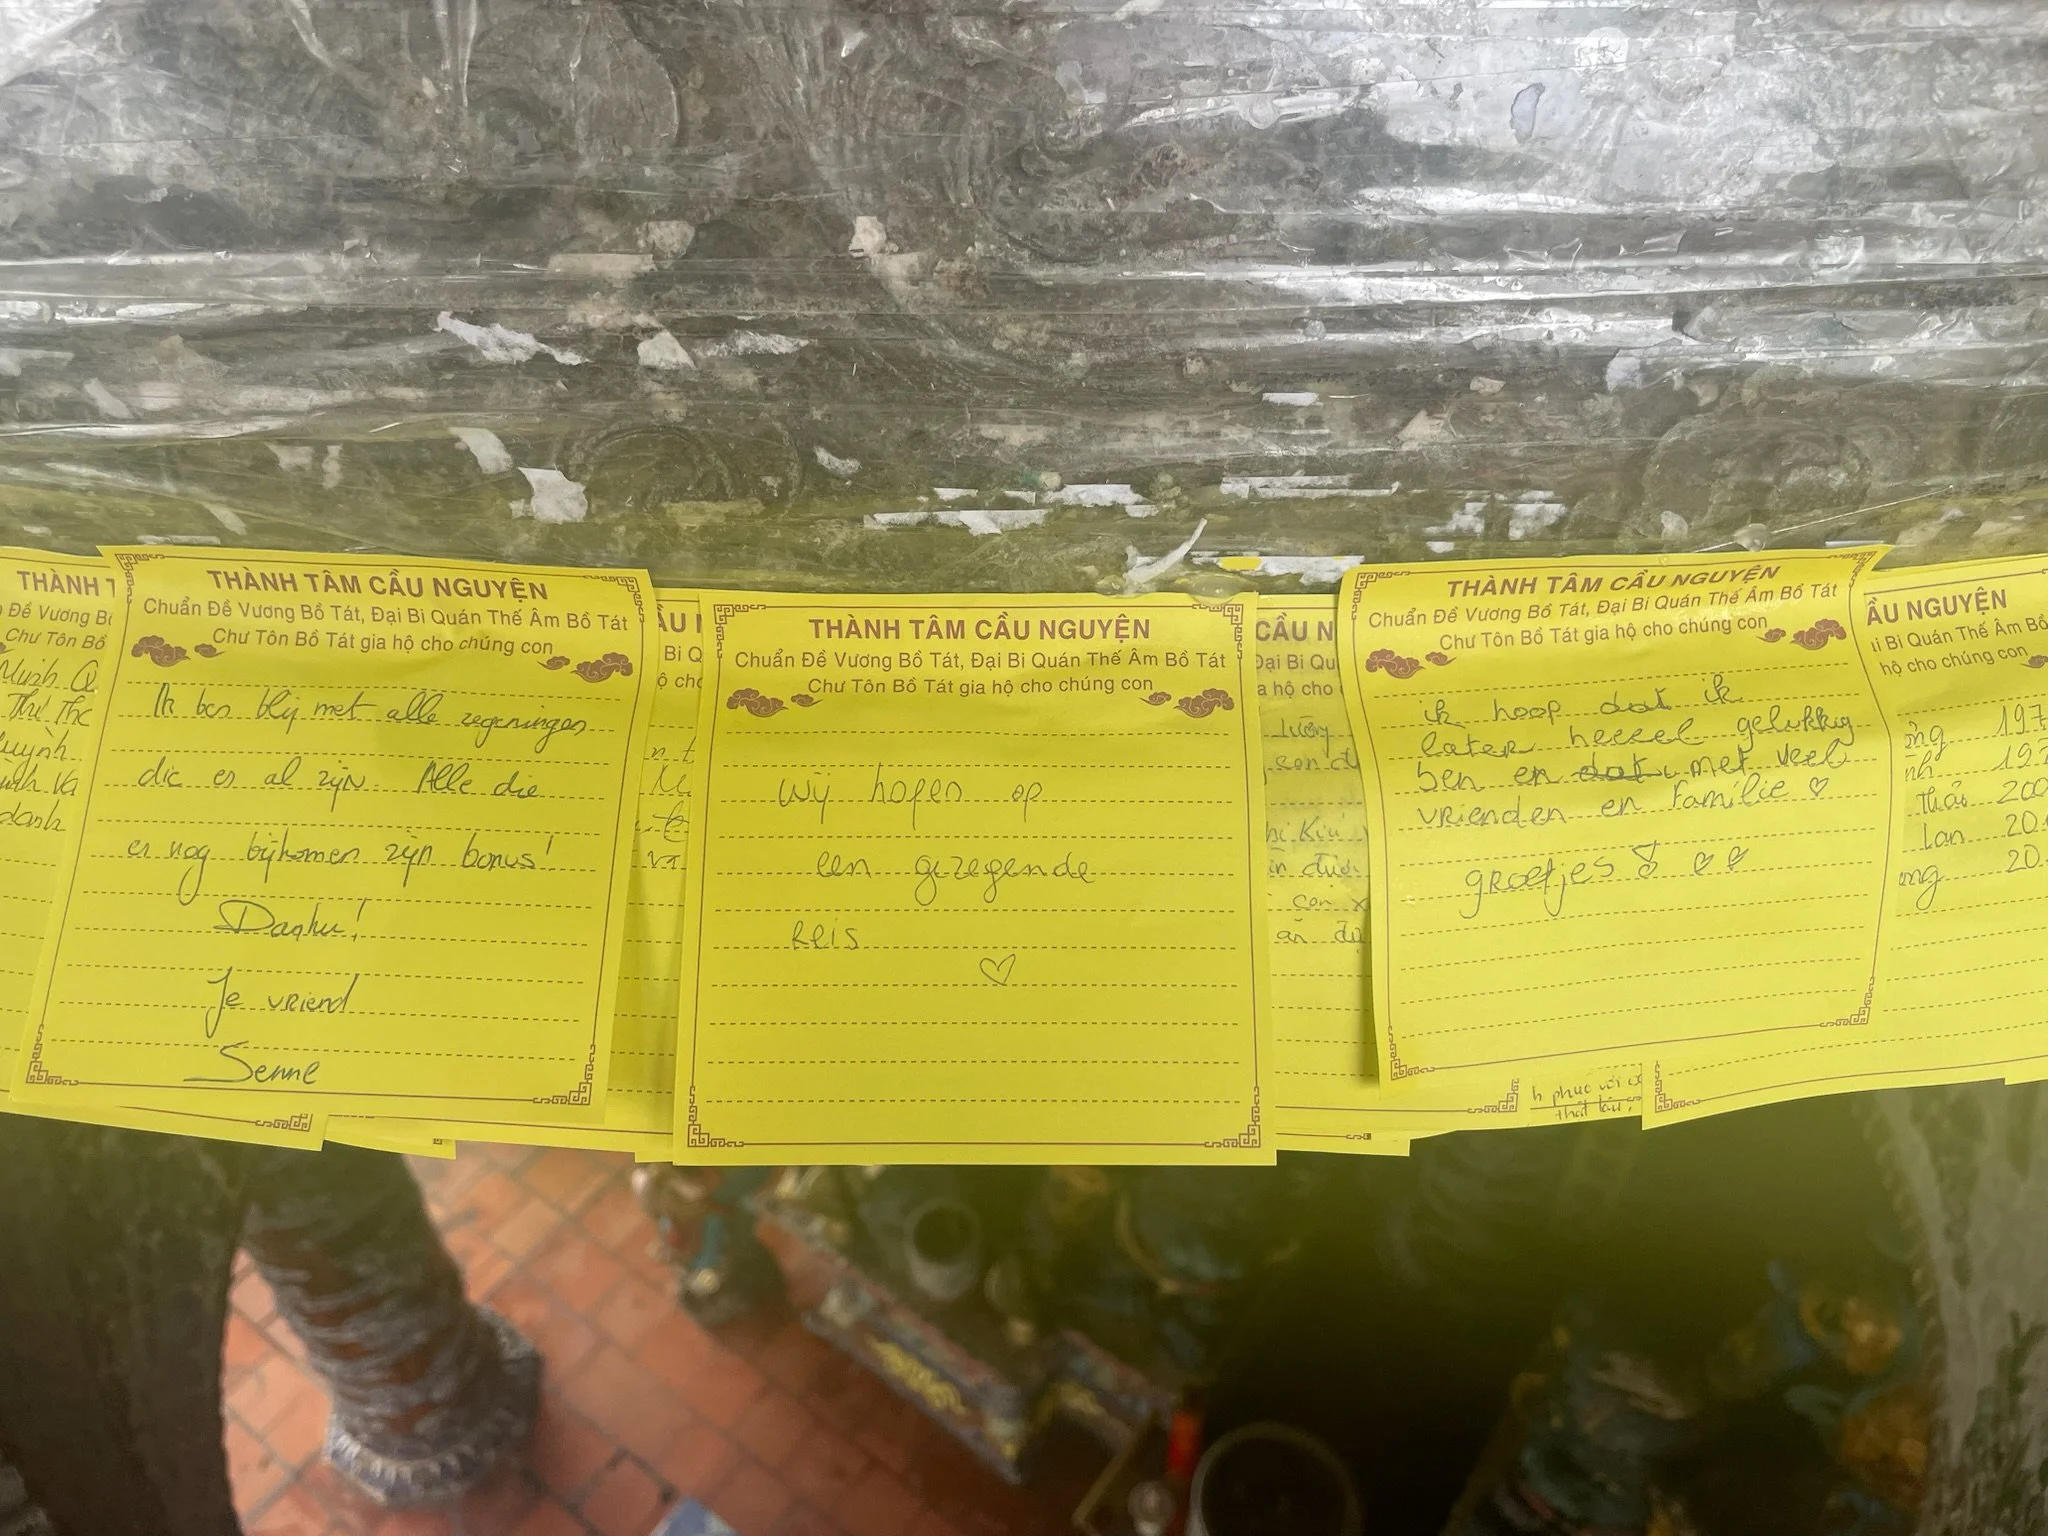 THÀNH TÂM CẦU NGUYỆN
Chuẩn Đề Vương Bồ Tát, Đại Bi Quán Thế Âm Bồ Tát
Chư Tôn Bồ Tát gia hộ cho chúng con
Ik ben blij met alle zegeningen
die er al zijn. Alle die
er nog bijkomen zijn bonus!
Danku!
Je vriend
Senne
THÀNH TÂM CẦU NGUYỆN
Chuẩn Đề Vương Bồ Tát, Đại Bi Quán Thế Âm Bồ Tát
Chư Tôn Bồ Tát gia hộ cho chúng con
Wij hopen op
een gezegende
Reis
THÀNH TÂM CẦU NGUYỆN
Chuẩn Đề Vương Bồ Tát, Đại Bi Quán Thế Âm Bồ Tát
Chư Tôn Bồ Tát gia hộ cho chúng con
ik hoop dat ik
later heeel gelukkig
ben en dat met veel
vrienden en familie
groetjes
THÀNH
Đề Vương
Chư Tôn Bồ
Minh
danh
CẦU
hộ cho
con
NGUYỆN
Bi Quán Thế Âm Bồ
hộ cho chúng con
lan